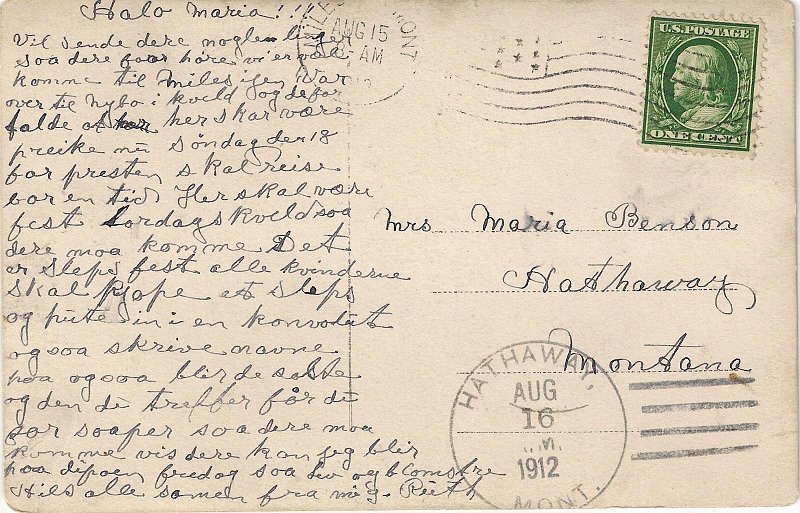 Halo Maria!!!
Vil sende dere nogle linger
soa dere faar höre vi er vell
komme til Miles igen var
over til Nybo i kveld og de for
falde at her skar være
preike nu söndag der 18
for presten skal reise
bor en tid. Her skal være
fest Lordags kveld soa
dere moa komme Det
er sleps fest alle kvinderne
skal kjøpe et sleps
og pute in i en konvolut
og soa skrive navne
poa og soa blir de
og den du treffer får du
soaper soa dere moa
komme vis dere kan jeg blir
poa dipoen fredag soa lev og blomstre
Hils alle samen fra mig. Ruth
AUG 15
AM
MONT
U.S. POSTAGE
ONE CENT
Mrs Maria Benson
Hathaway
Montana
HATHAWAY,
AUG
16
M.
1912
MONT.